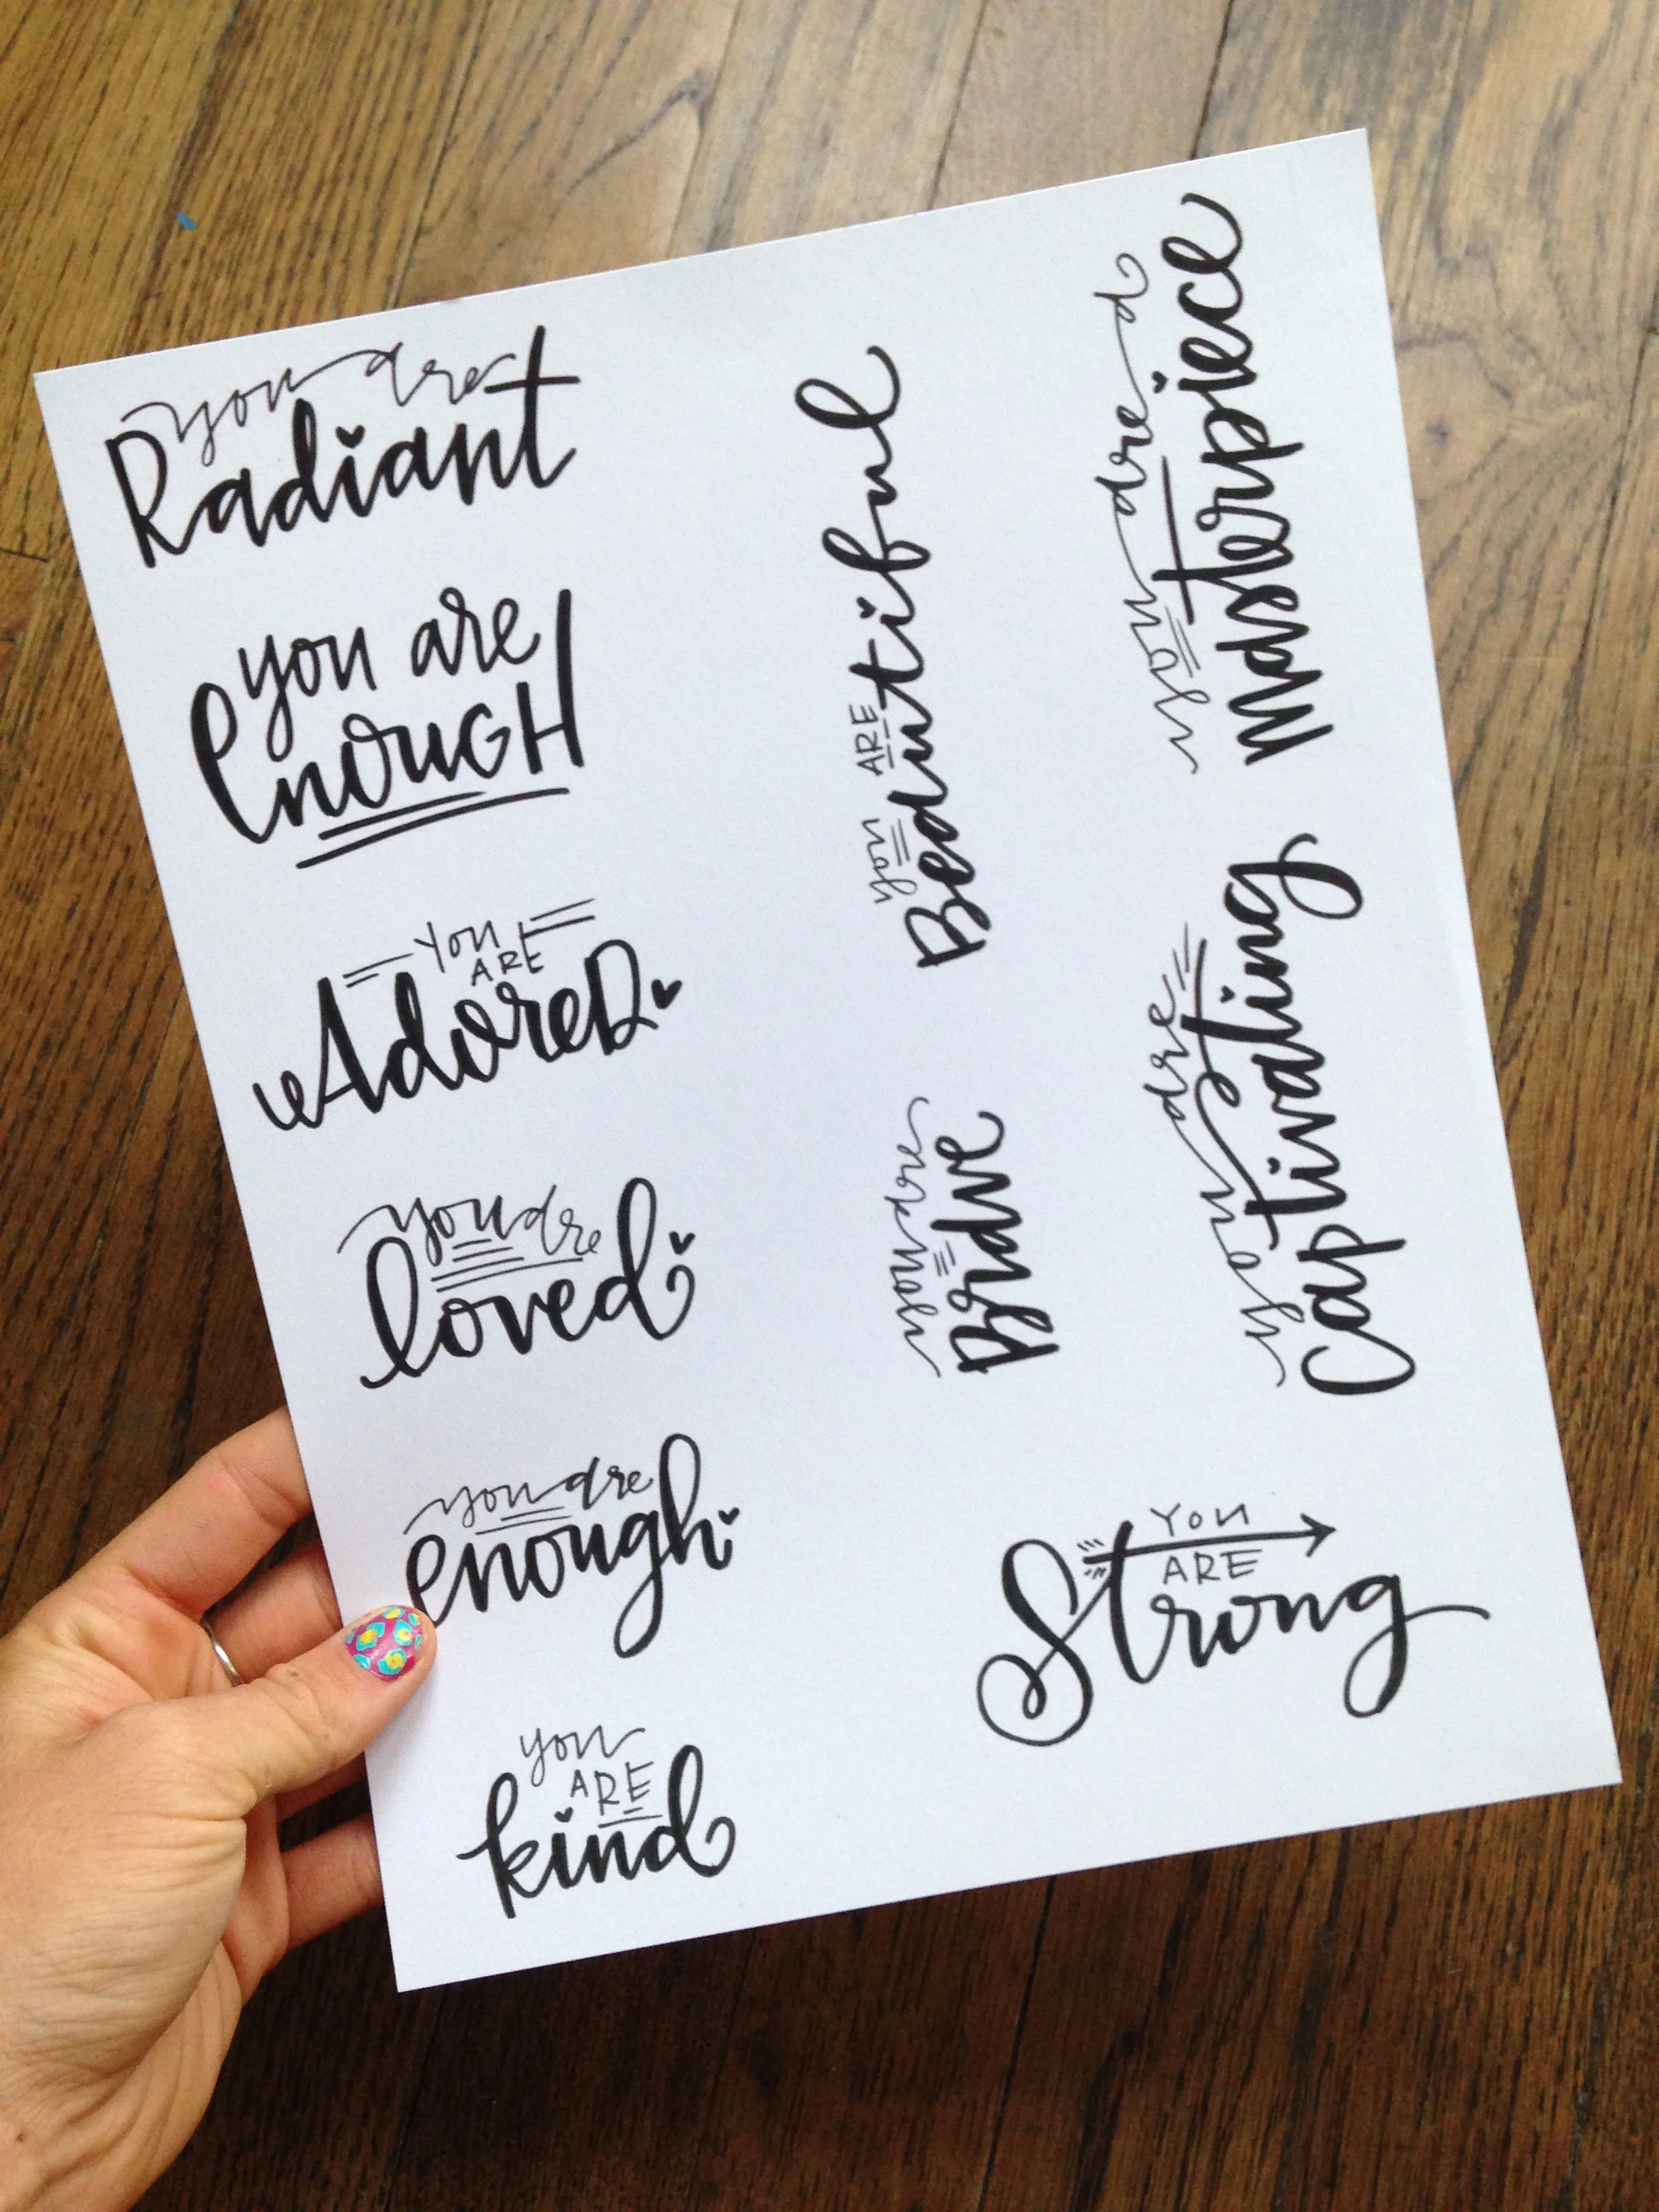 you are
Radiant
you are
enouGH
You
ARE
AdoreD
you are
loved
you are
enough
you
ARE
kind
you ARE
Beautiful
you are
Brave
you are a
Masterpiece
you are
Captivating
You
ARE
Strong